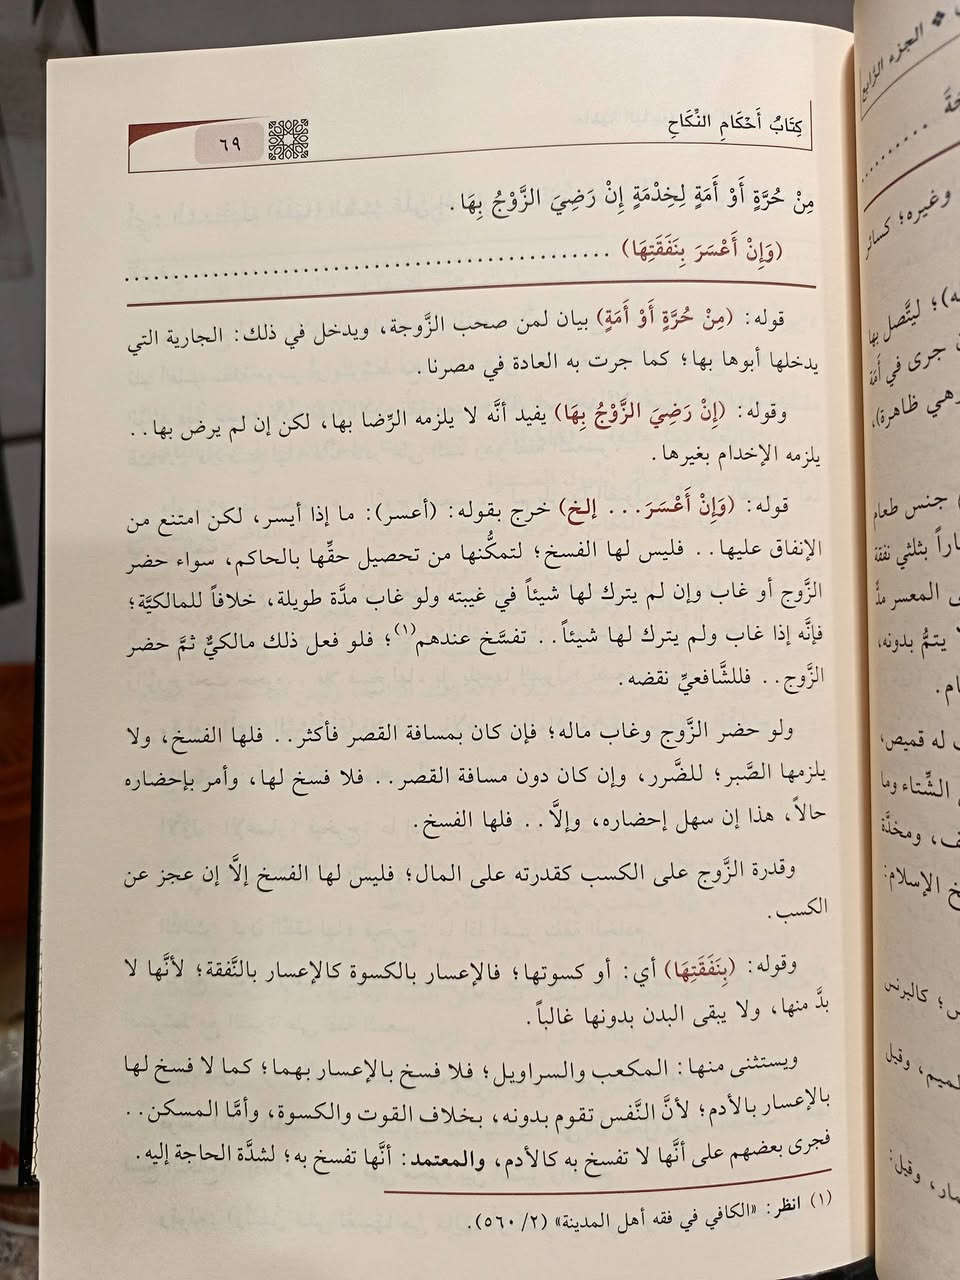 كِتَابُ أَحْكَامِ النِّكَاحِ
٦٩
مِنْ حُرَّةٍ أَوْ أَمَةٍ لِخِدْمَةٍ إِنْ رَضِيَ الزَّوْجُ بِهَا.
(وَإِنْ أَعْسَرَ بِنَفَقَتِهَا) ..................................................
قوله: (مِنْ حُرَّةٍ أَوْ أَمَةٍ) بيان لمن صحب الزَّوجة، ويدخل في ذلك: الجارية التي
يدخلها أبوها بها؛ كما جرت به العادة في مصرنا.
وقوله: (إِنْ رَضِيَ الزَّوْجُ بِهَا) يفيد أنَّه لا يلزمه الرِّضا بها، لكن إن لم يرض بها..
يلزمه الإخدام بغيرها.
قوله: (وَإِنْ أَعْسَرَ... إلخ) خرج بقوله: (أعسر): ما إذا أيسر، لكن امتنع من
الإنفاق عليها.. فليس لها الفسخ؛ لتمكُّنها من تحصيل حقِّها بالحاكم، سواء حضر
الزَّوج أو غاب وإن لم يترك لها شيئاً في غيبته ولو غاب مدَّة طويلة، خلافاً للمالكيَّة؛
فإنَّه إذا غاب ولم يترك لها شيئاً.. تفسَّخ عندهم(١)؛ فلو فعل ذلك مالكيٌّ ثمَّ حضر
الزَّوج.. فللشَّافعيِّ نقضه.
ولو حضر الزَّوج وغاب ماله؛ فإن كان بمسافة القصر فأكثر.. فلها الفسخ، ولا
يلزمها الصَّبر؛ للضَّرر، وإن كان دون مسافة القصر.. فلا فسخ لها، وأمر بإحضاره
حالاً، هذا إن سهل إحضاره، وإلَّا.. فلها الفسخ.
وقدرة الزَّوج على الكسب كقدرته على المال؛ فليس لها الفسخ إلَّا إن عجز عن
الكسب.
وقوله: (بِنَفَقَتِهَا) أي: أو كسوتها؛ فالإعسار بالكسوة كالإعسار بالنَّفقة؛ لأنَّها لا
بدَّ منها، ولا يبقى البدن بدونها غالباً.
ويستثنى منها: المكعب والسراويل؛ فلا فسخ بالإعسار بهما؛ كما لا فسخ لها
بالإعسار بالأدم؛ لأنَّ النَّفس تقوم بدونه، بخلاف القوت والكسوة، وأمَّا المسكن..
فجرى بعضهم على أنَّها لا تفسخ به كالأدم، والمعتمد: أنَّها تفسخ به؛ لشدَّة الحاجة إليه.
(١) انظر: «الكافي في فقه أهل المدينة» (٥٦٠/٢).
الجزء الرَّابع
وغيره؛ كسائر
ه)؛ ليتَّصل بها
جرى في أَمَة
وهي ظاهرة)،
جنس طعام
بثلثي نفقة
المعسر مدٌّ
يتمُّ بدونه،
له قميص،
الشِّتاء وما
ومخدَّة
الإسلام:
كالبرنس
وقيل
وقيل: